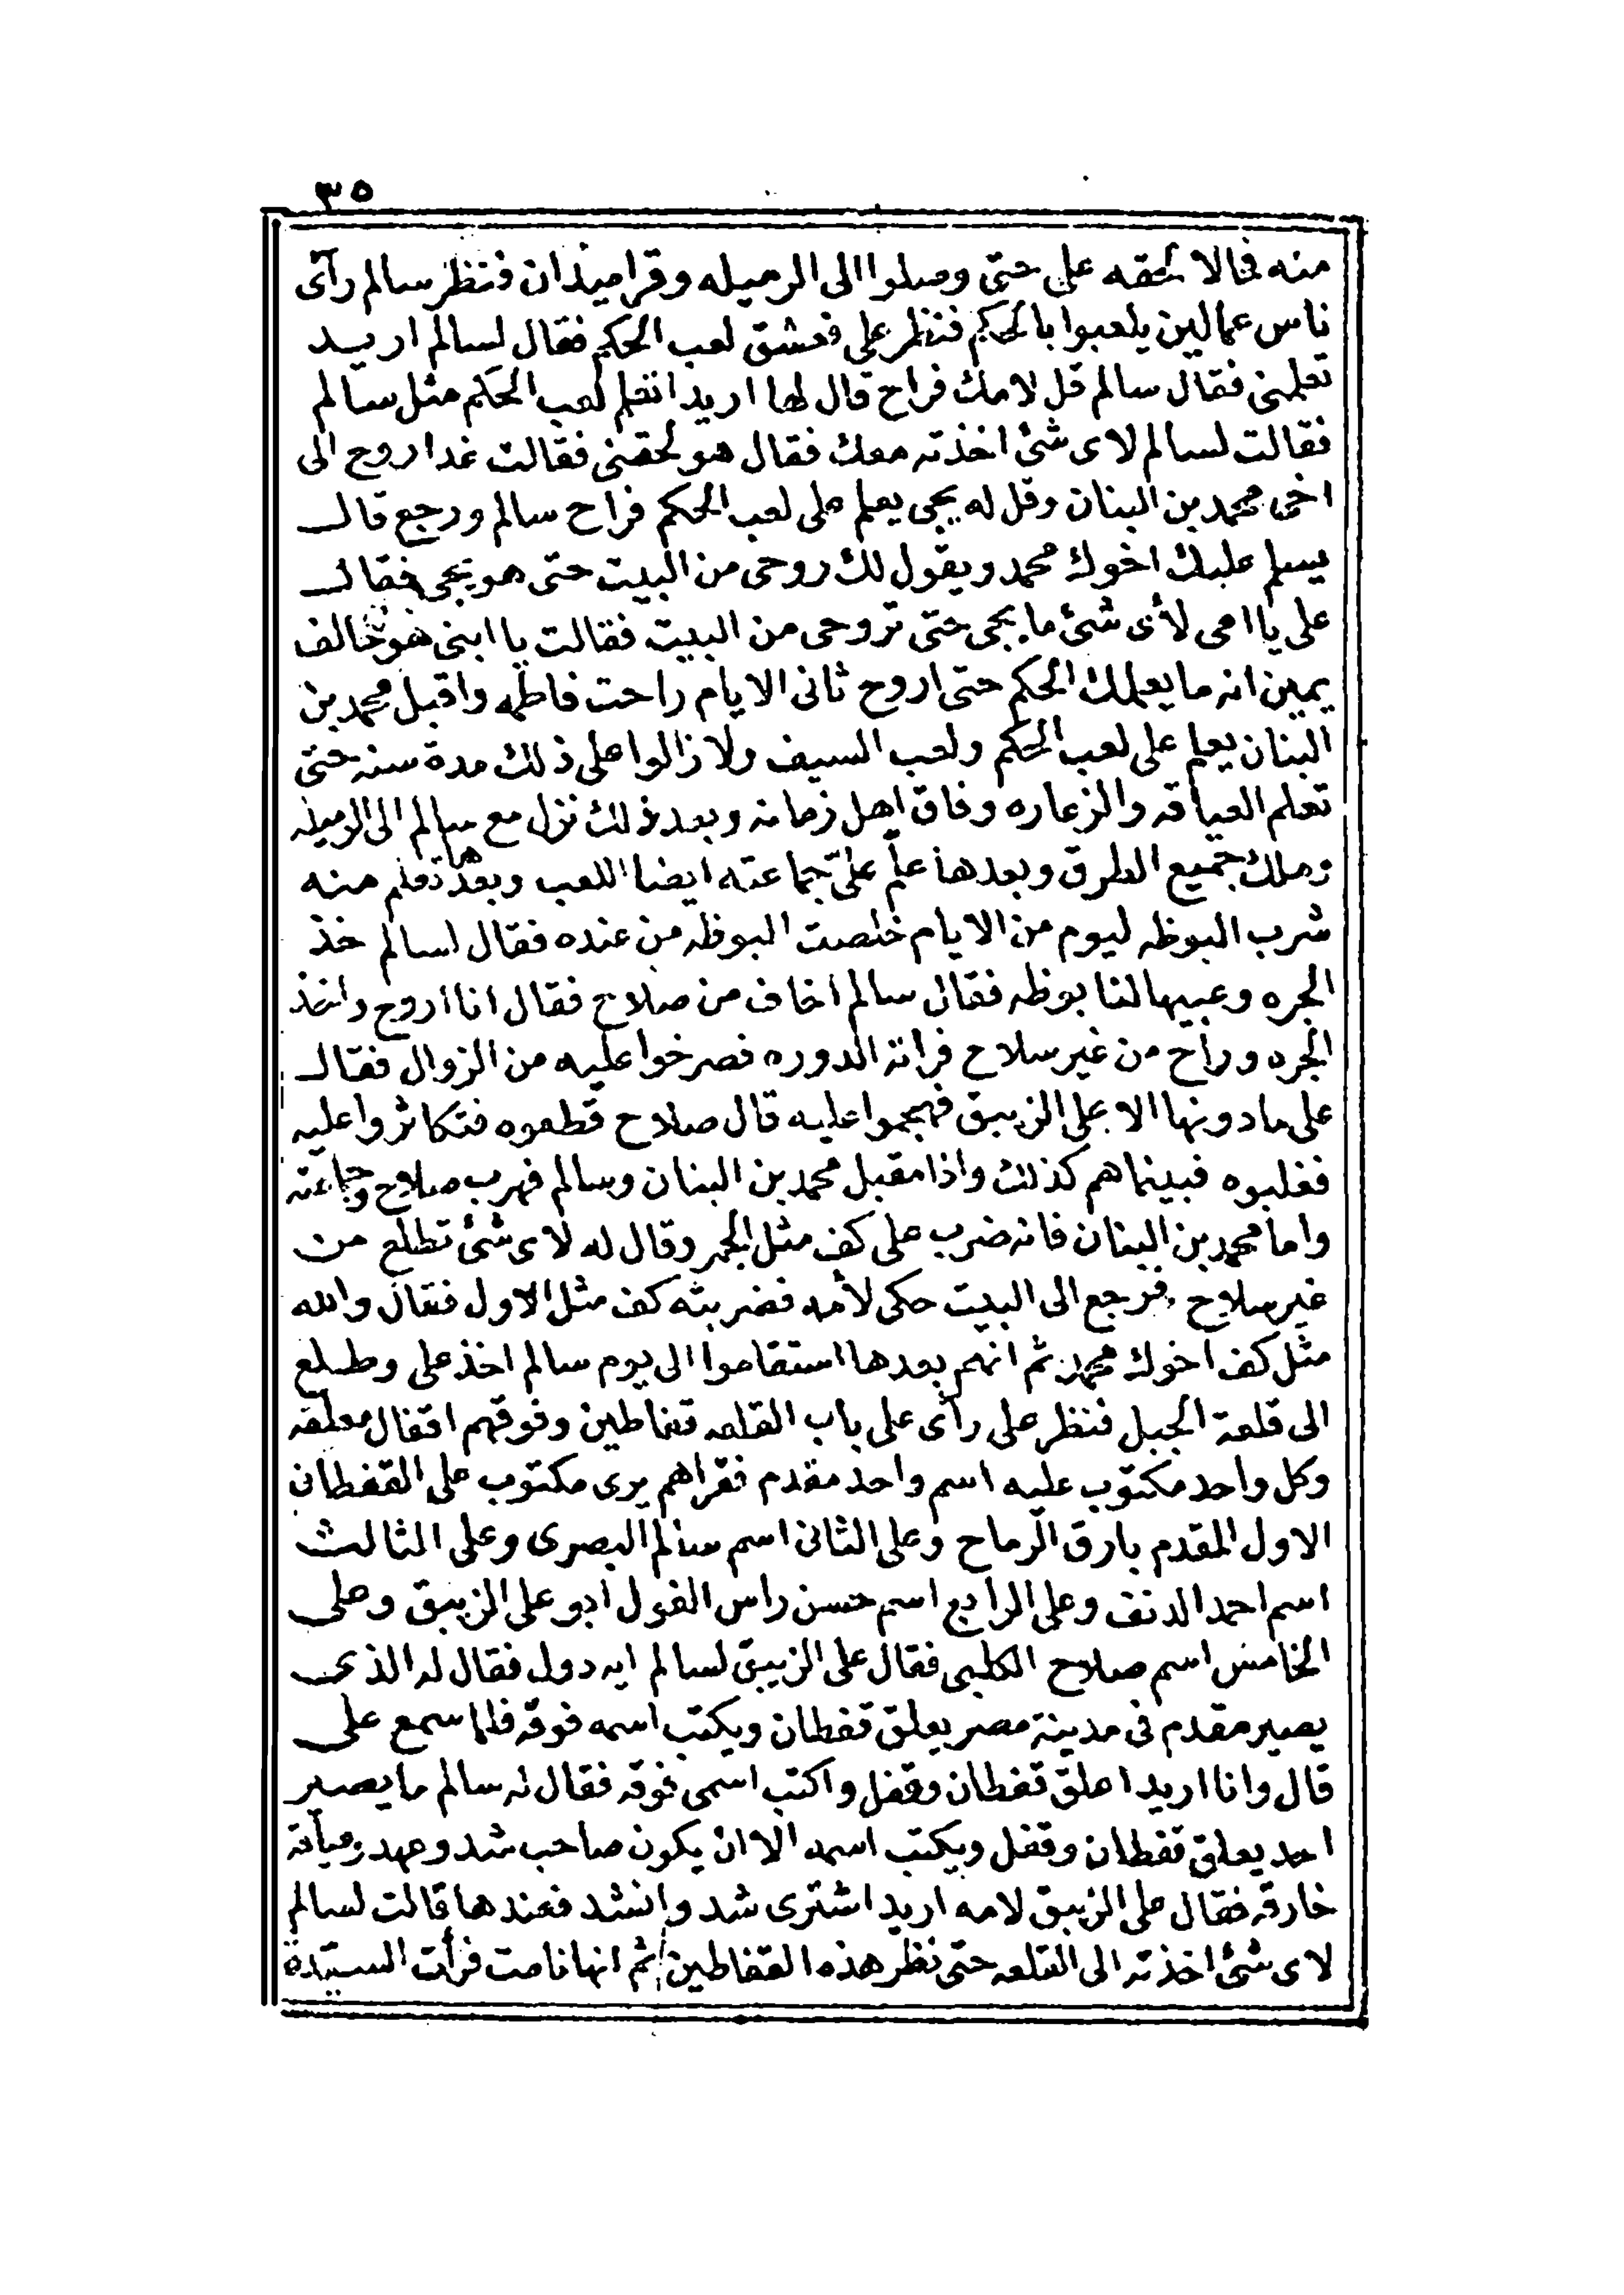 ٣٥
منه فى الا لحقه على حتى وصلوا الى الرميله وقراميدان فنظر سالم رآى
ناس عمالين يلعبوا بالحكم فنظر على فعشق لعب الحكم فقال لسالم اريد
تعلمنى فقال سالم قل لامك فراح قال لها اريد اتعلم لعب الحكم مثل سالم
فقالت لسالم لاى شئ اخذته معك فقال هو لحقنى فقالت غدا روح الى
اخى محمد بن البنان وقل له يجى يعلم على لعب الحكم فراح سالم ورجع قال
يسلم عليك اخوك محمد ويقول لك روحى من البيت حتى هو يجى فقال
على يا امى لأى شئ ما يجى حتى تروحى من البيت فقالت يا ابنى هو حالف
يمين انه ما يعلمك الحكم حتى اروح ثانى الايام راحت فاطمه واقبل محمد بن
البنان يعلم على لعب الحكم ولعب السيف ولا زالوا على ذلك مدة سنه حتى
تعلم العياقه والزعاره وفاق اهل زمانه وبعد ذلك نزل مع سالم الى الرميله
وملك جميع الطرق وبعدها علم علىّ جماعته ايضا اللعب وبعدها تعلم منه
شرب البوظه ليوم من الايام خلصت البوظه من عنده فقال لسالم خذ
الجره وعبيها لنا بوظه فقال سالم اخاف من صلاح فقال انا اروح واخذ
الجره وراح من غير سلاح فراته الدوره فصرخوا عليه من الزوال فقال
على ما دونها الا على الزيبق فهجموا عليه قال صلاح قطعوه فتكاثروا عليه
فغلبوه فبينما هم كذلك واذا مقبل محمد بن البنان وسالم فهرب صلاح وجماعته
واما محمد بن البنان فانه ضرب على كف مثل الجمر وقال له لاى شئ تطلع من
غير سلاح فرجع الى البيت حكى لأمه فضربته كف مثل الاول فقال والله
مثل كف اخوك محمد ثم انهم بعدها استقاموا الى يوم سالم اخذ على وطلع
الى قلعة الجبل فنظر على رآى على باب القلعه قفاطين وفوقهم اقفال معلقه
وكل واحد مكتوب عليه اسم واحد مقدم فقراهم يرى مكتوب على القفطان
الاول المقدم بارق الرماح وعلى الثانى اسم سالم البصرى وعلى الثالث
اسم احمد الدنف وعلى الرابع اسم حسن راس الغول ابو على الزيبق وعلى
الخامس اسم صلاح الكلبى فقال على الزيبق لسالم ايه دول فقال له الذى
يصير مقدم فى مدينة مصر يعلق قفطان ويكتب اسمه فوقه فلما سمع على
قال وانا اريد اعلق قفطان وقفل واكتب اسمى فوقه فقال له سالم ما يصير
احد يعلق قفطان وقفل ويكتب اسمه الا ان يكون صاحب شد وعهد
خارقه فقال على الزيبق لامه اريد اشترى شد وانشد فعندها قالت لسالم
لاى شئ اخذته الى القلعه حتى نظر هذه القفاطين ثم انها نامت فرأت السيدة